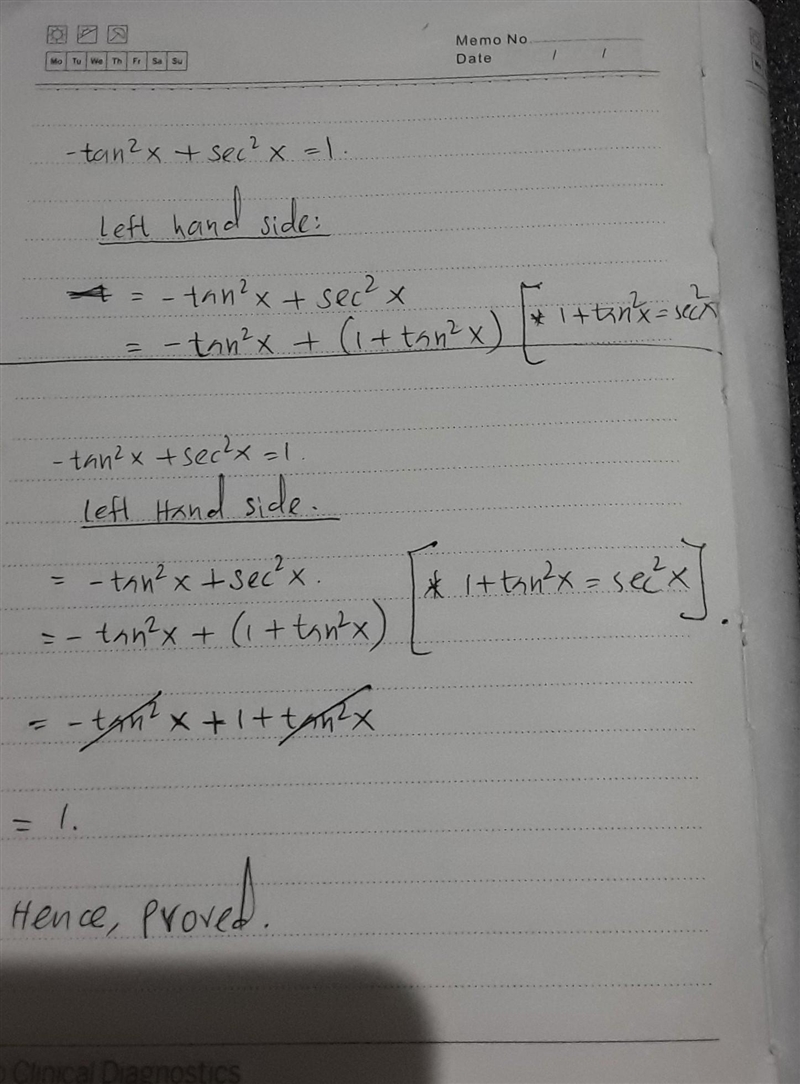 Memo No
Date / /
Mo Tu We Th Fr Sa Su
-tan²x + sec²x = 1.
Left hand side:
= -tan²x + sec²x
= -tan²x + (1 + tan²x) [* 1 + tan²x = sec²x
-tan²x + sec²x = 1.
Left Hand side.
= -tan²x + sec²x.
= -tan²x + (1 + tan²x) [* 1 + tan²x = sec²x].
= -tan²x + 1 + tan²x
= 1.
Hence, Proved.
Clinical Diagnostics